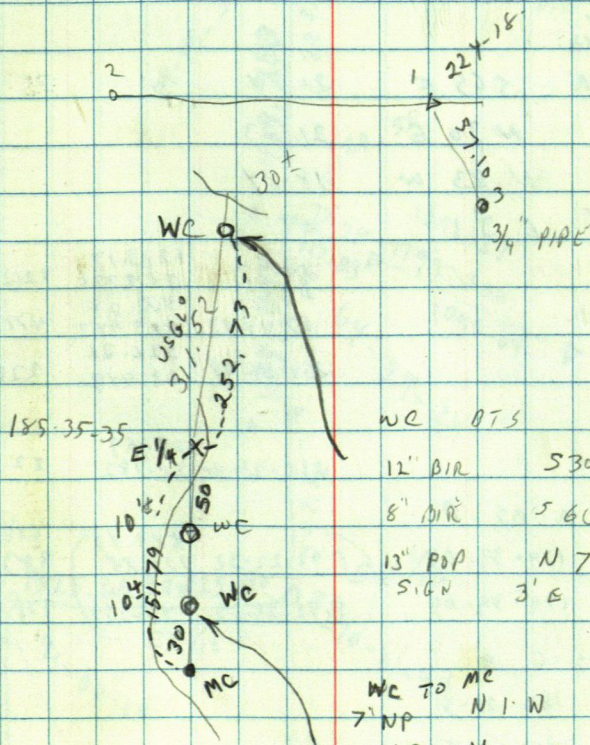 2
1
224-18
57.10
3
3/4" PIPE
30±
WC
311.52
252.73
185-35-35
E 1/4
50
WC
10±
151.79
WC
30
MC
WC BTS
12" BIR S 30
8" BIR S 60
13" POP N 7
SIGN 3' E
WC TO MC
7" NP N 1 W